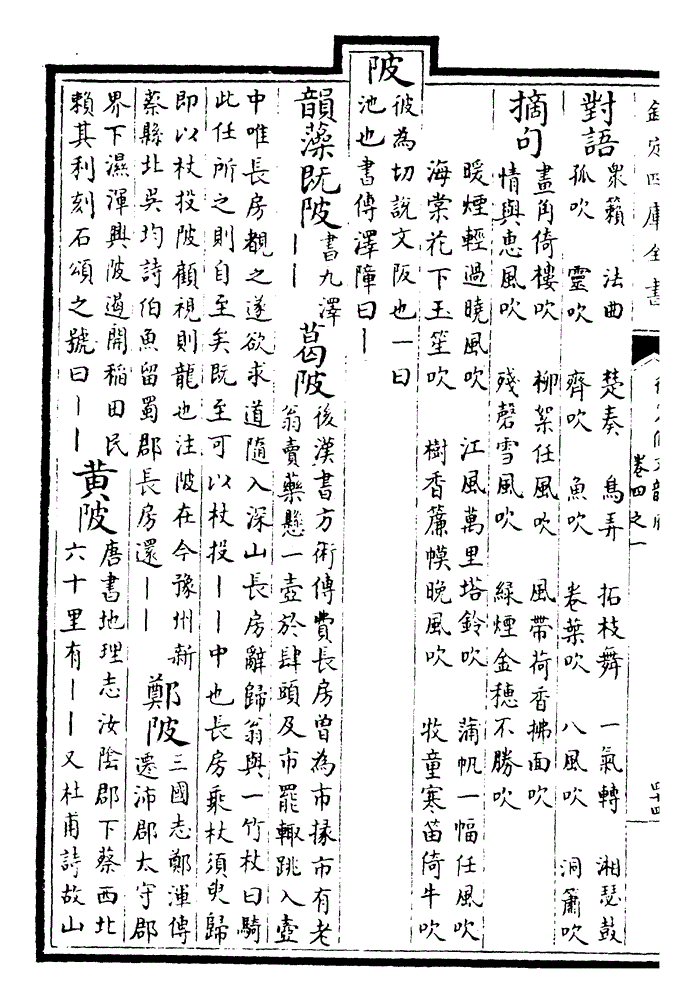 欽定四庫全書
卷四之一
四十四
對語 衆籟 法曲 楚奏 鳥弄 拓枝舞 一氣轉 湘瑟鼓
孤吹 靈吹 齊吹 魚吹 卷葉吹 八風吹 洞簫吹
摘句 畫角倚樓吹 柳絮任風吹 風帶荷香拂面吹
情與惠風吹 殘磬雪風吹 綠煙金穗不勝吹
暖煙輕過曉風吹 江風萬里塔鈴吹 蒲帆一幅任風吹
海棠花下玉笙吹 樹香簾幙晚風吹 牧童寒笛倚牛吹
陂 彼為切說文阪也一曰
池也書傳澤障曰丨
韻藻既陂 書九澤
丨丨
葛陂 後漢書方術傳費長房曾為市掾市有老
翁賣藥懸一壺於肆頭及市罷輙跳入壺
中唯長房覩之遂欲求道隨入深山長房辭歸翁與一竹杖曰騎
此任所之則自至矣既至可以杖投丨丨中也長房乘杖須臾歸
即以杖投陂顧視則龍也注陂在今豫州新
蔡縣北吳均詩伯魚留蜀郡長房還丨丨
鄭陂 三國志鄭渾傳
遷沛郡太守郡
界下濕渾興陂遏開稻田民
賴其利刻石頌之號曰丨丨
黃陂 唐書地理志汝陰郡下蔡西北
六十里有丨丨又杜甫詩故山